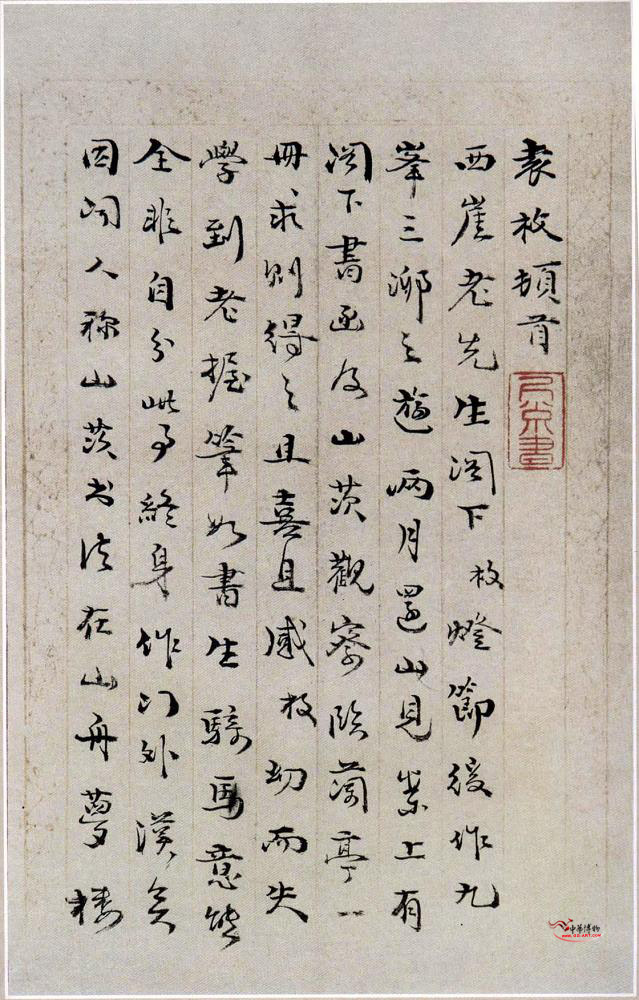 袁枚頓首
西崖老先生閣下枚燈節後作九
峯三泖之遊兩月還山見案上有
閣下書函及山茨觀察臨蘭亭一
冊求則得之且喜且感枚幼而失
學到老握筆如書生騎馬意態
全非自分此事終身作门外漢矣
因闻人稱山茨書法在山舟夢樓
中華博物
www.gg-art.com